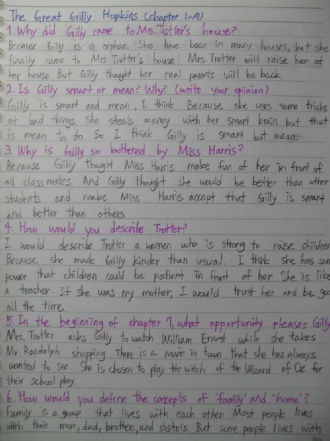 The Great Gilly Hopkins (chapter 1~9)
1. Why did Gilly came to Ms. Trotter's house?
Because Gilly is a orphan. She have been in many houses, but she
finally came to Mrs Trotter's house. Mrs Trotter will raise her at
her house. But Gilly thought her real parents will be back.
2. Is Gilly smart or mean? Why? (write your opinion)
Gilly is smart and mean, I think. Because she uses some tricks
at bad things. She steals money with her smart brain but that
is mean to do So I think Gilly is smart but mean.
3. Why is Gilly so bothered by Miss Harris?
Because Gilly thought Miss Harris make fun of her in front of
all classmates. And Gilly thought she would be better than other
students and make Miss Harris accept that Gilly is smart
and better than others.
4. How would you describe Trotter?
I would describe Trotter a women who is strong to raise children
Because she made Gilly kinder than usual. I think she has some
power that children could be patient in front of her She is like
a teacher. If she was my mother, I would trust her and be good
all the time.
5. In the beginning of chapter 7, what opportunity pleases Gilly
Mrs. Trotter asks Gilly to watch William Ernest while she takes
Mr. Randolph shopping. There is a movie in town that she has always
wanted to see She is chosen to play the witch of the Wizard of Oz for
their school play.
6. How would you define the concepts of 'family' and 'home'?
Family is a group that lives with each other Most people lives
with their mom, dad, brothers, and sisters. But some people lives with